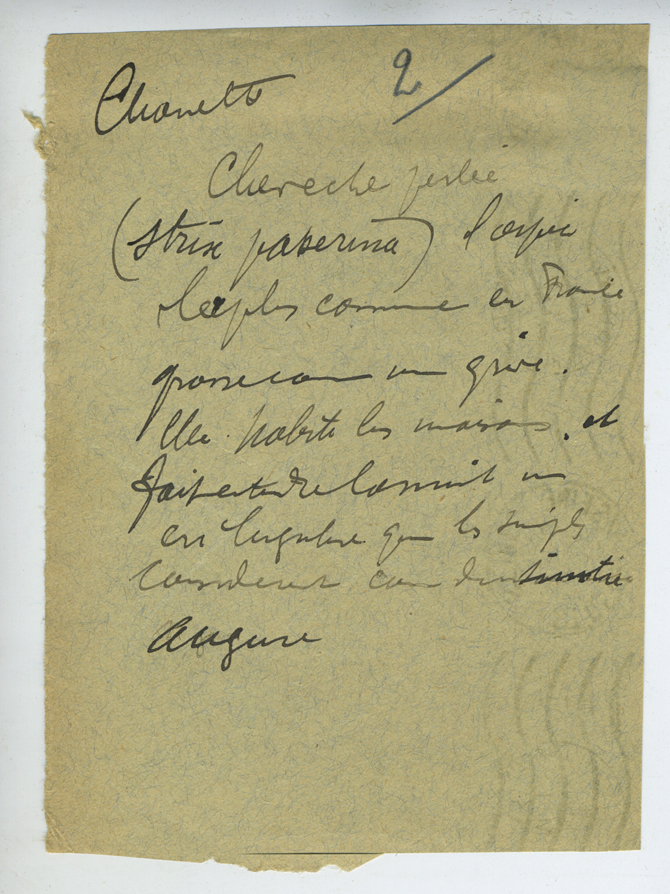 Chouette 2
Cheveche perlée
(Strix passerina) l'espèce
la plus commune en France
grosse comme une grive.
Elle habite les maisons, et
fait entendre la nuit un
cri lugubre que les simples
considerent comme d'un sinistre
augure